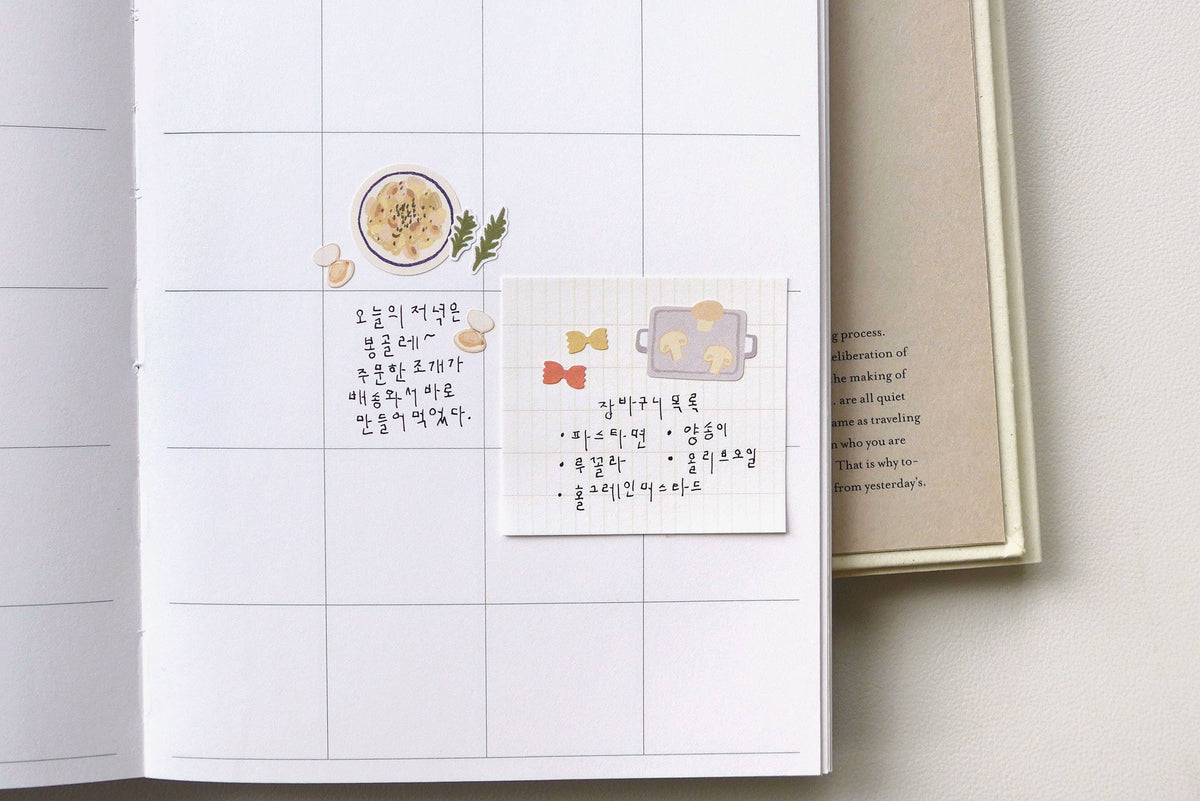 오늘의 저녁은
봉골레~
주문한 조개가
배송와서 바로
만들어 먹었다.
장바구니 목록
• 파스타면 • 양송이
• 루꼴라 • 올리브오일
• 홀그레인머스타드
g process.
eliberation of
he making of
. are all quiet
ame as traveling
n who you are
That is why to-
from yesterday's,